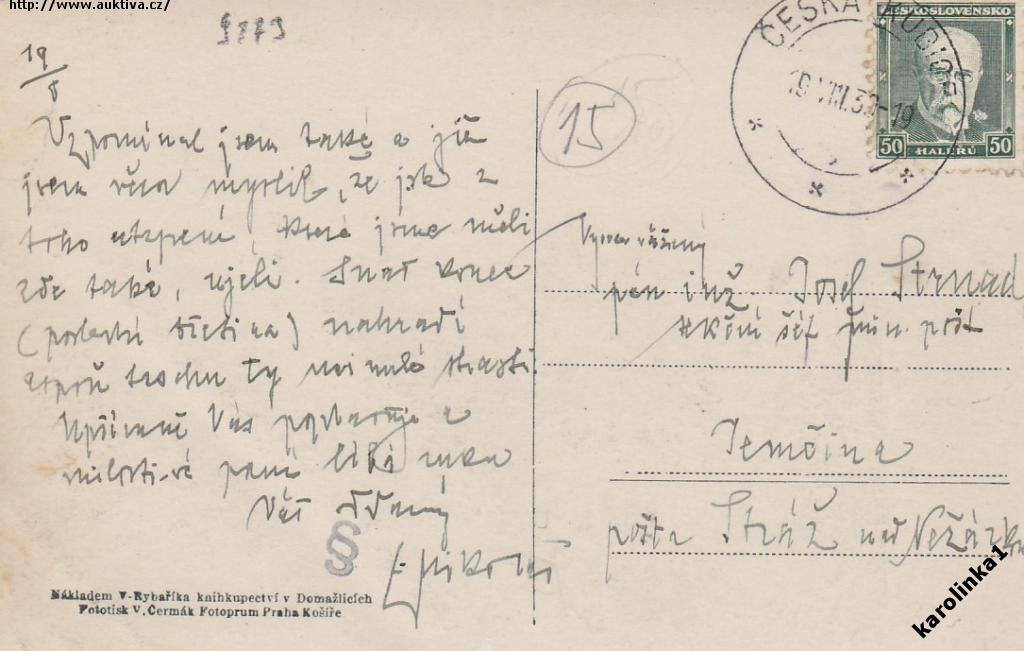 http://www.auktiva.cz/
9179
19
15
ČESKÁ KUBICE
19.VIII.3 -19
ČESKOSLOVENSKO
50 HALÉŘŮ 50
Vzpomínal jsem také a již
jsem včera myslil, že jste z
toho utrpení, které jsme měli
zde také, ujeli. Snad konec
(poslední třetina) nahradí
aspoň trochu ty minulé strasti.
Upřímně Vás pozdravuje a
milostivé paní líbá ruku
Váš oddaný
§
Vysoce vážený
pán inž. Josef Strnad
sekční šéf min. pošt
Jemčina
pošta Stráž nad Nežárkou
Nákladem V-Rybaříka knihkupectví v Domažlicích
Fototisk V. Čermák Fotoprum Praha Košíře
karolinka1